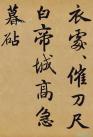 衣處處催刀尺
白帝城高急
暮砧